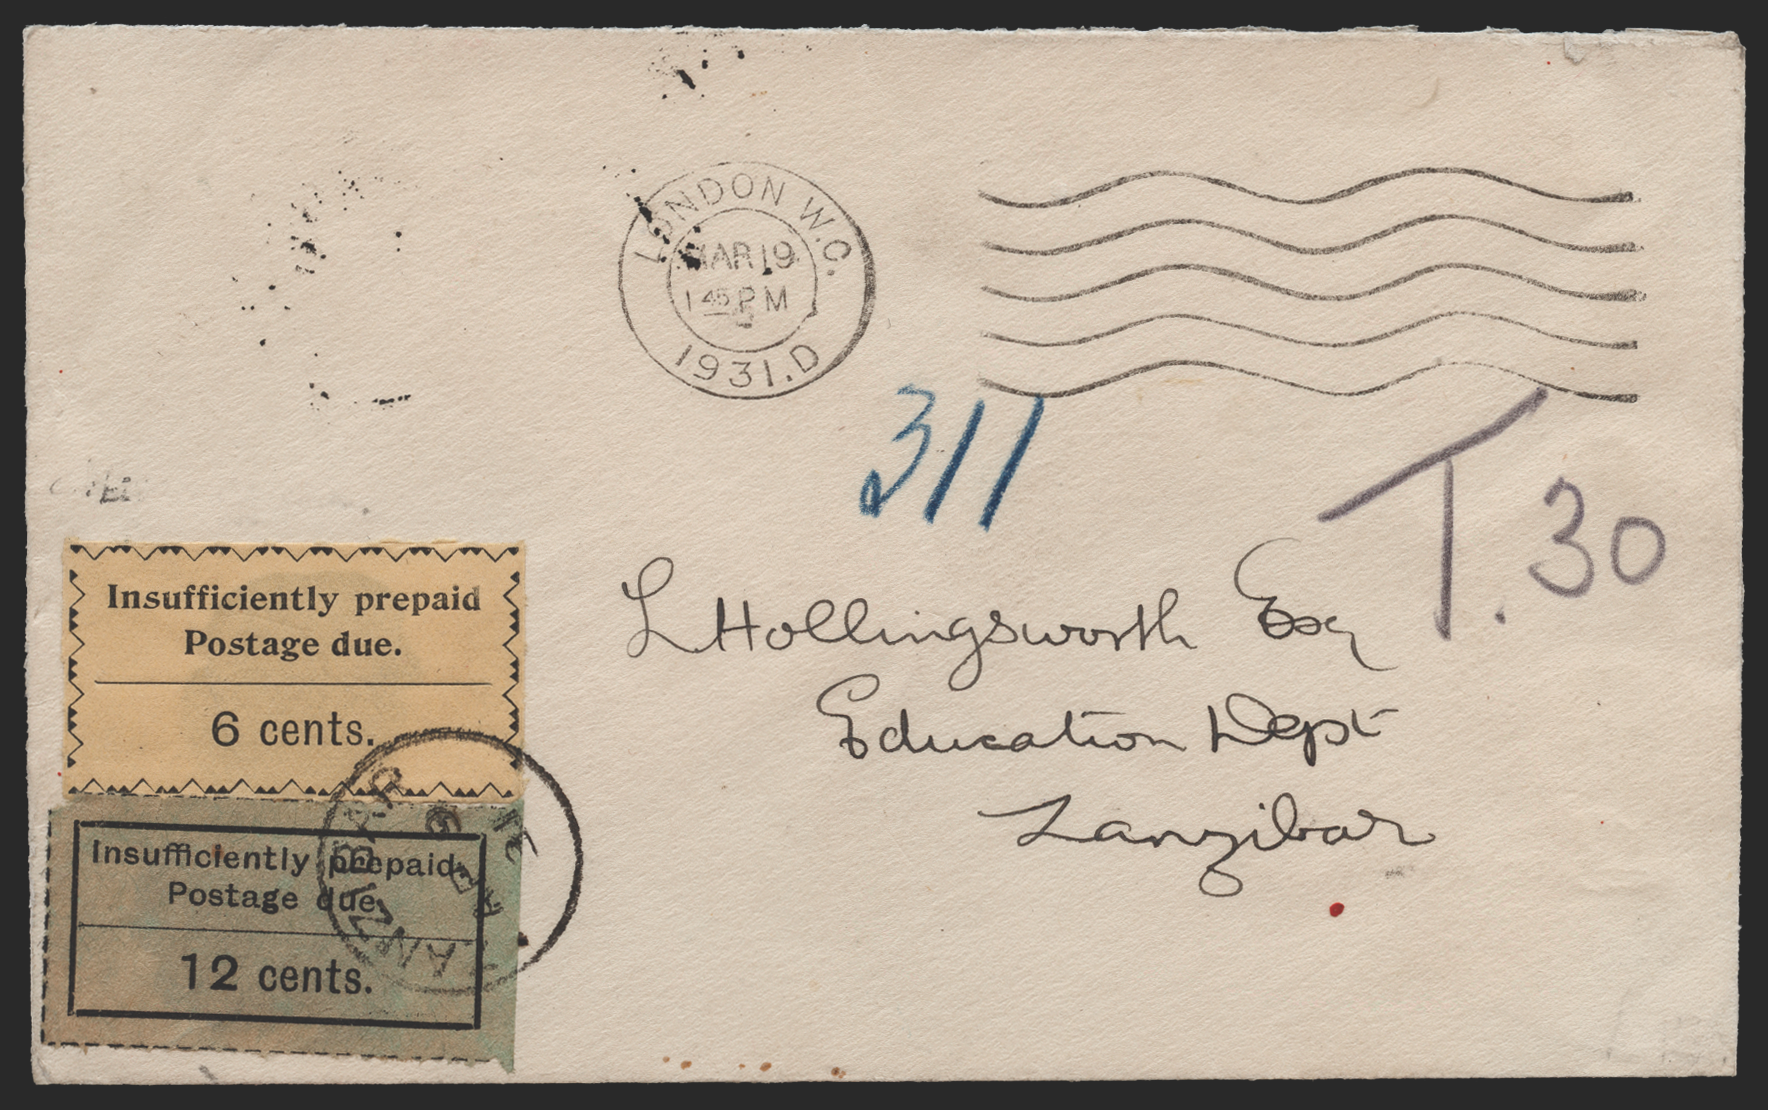 LONDON W.C.
MAR 19
1 45 PM
1931.D
311
T. 30
L Hollingsworth Esq
Education Dept
Zanzibar
Insufficiently prepaid
Postage due.
6 cents.
Insufficiently prepaid.
Postage due.
12 cents.
ZANZIBAR